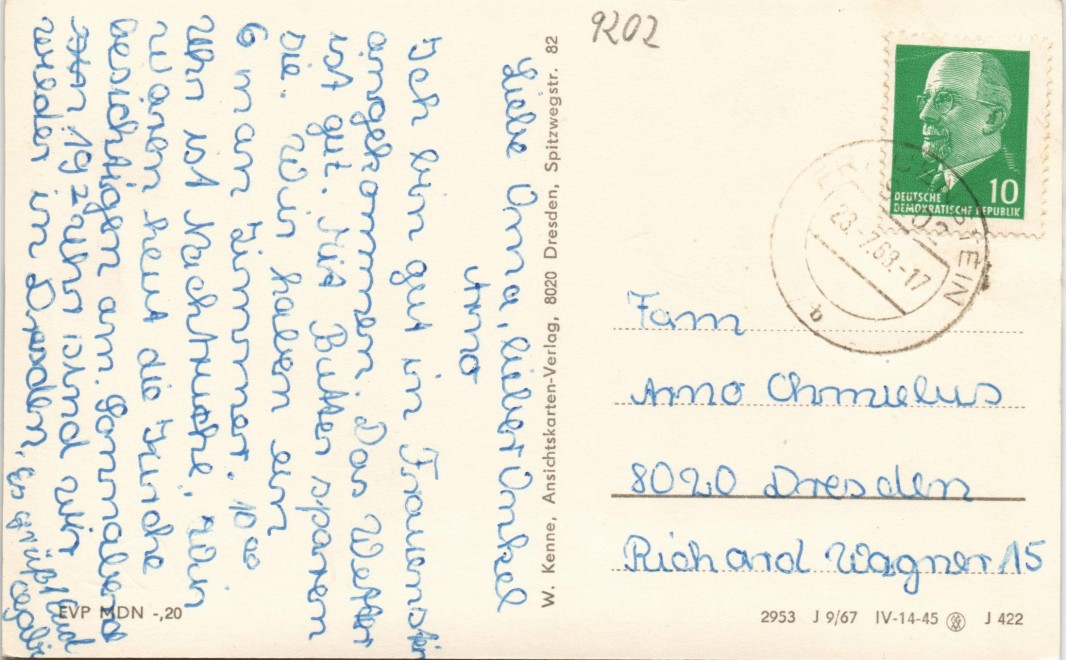 Liebe Oma, lieber Onkel
Arno
Ich bin gut in Frauenstein
angekommen. Das Wetter
ist gut. Mit Butter sparen
die. Wir haben ein
6 man Zimmer. 10⁰⁰
Uhr ist Nachtruhe. Wir
waren heut die Kirche
besichtigen am Sonnabend
19 Uhr sind wir
wieder in Dresden, Es grüßt Euch
W. Kenne, Ansichtskarten-Verlag, 8020 Dresden, Spitzwegstr. 82
9202
DEUTSCHE
DEMOKRATISCHE REPUBLIK
10
FRAUENSTEIN
9202
23.-7.68.-17
b
Fam
Arno Chmielus
8020 Dresden
Richard Wagner 15
EVP MDN -,20
2953 J 9/67 IV-14-45 J 422